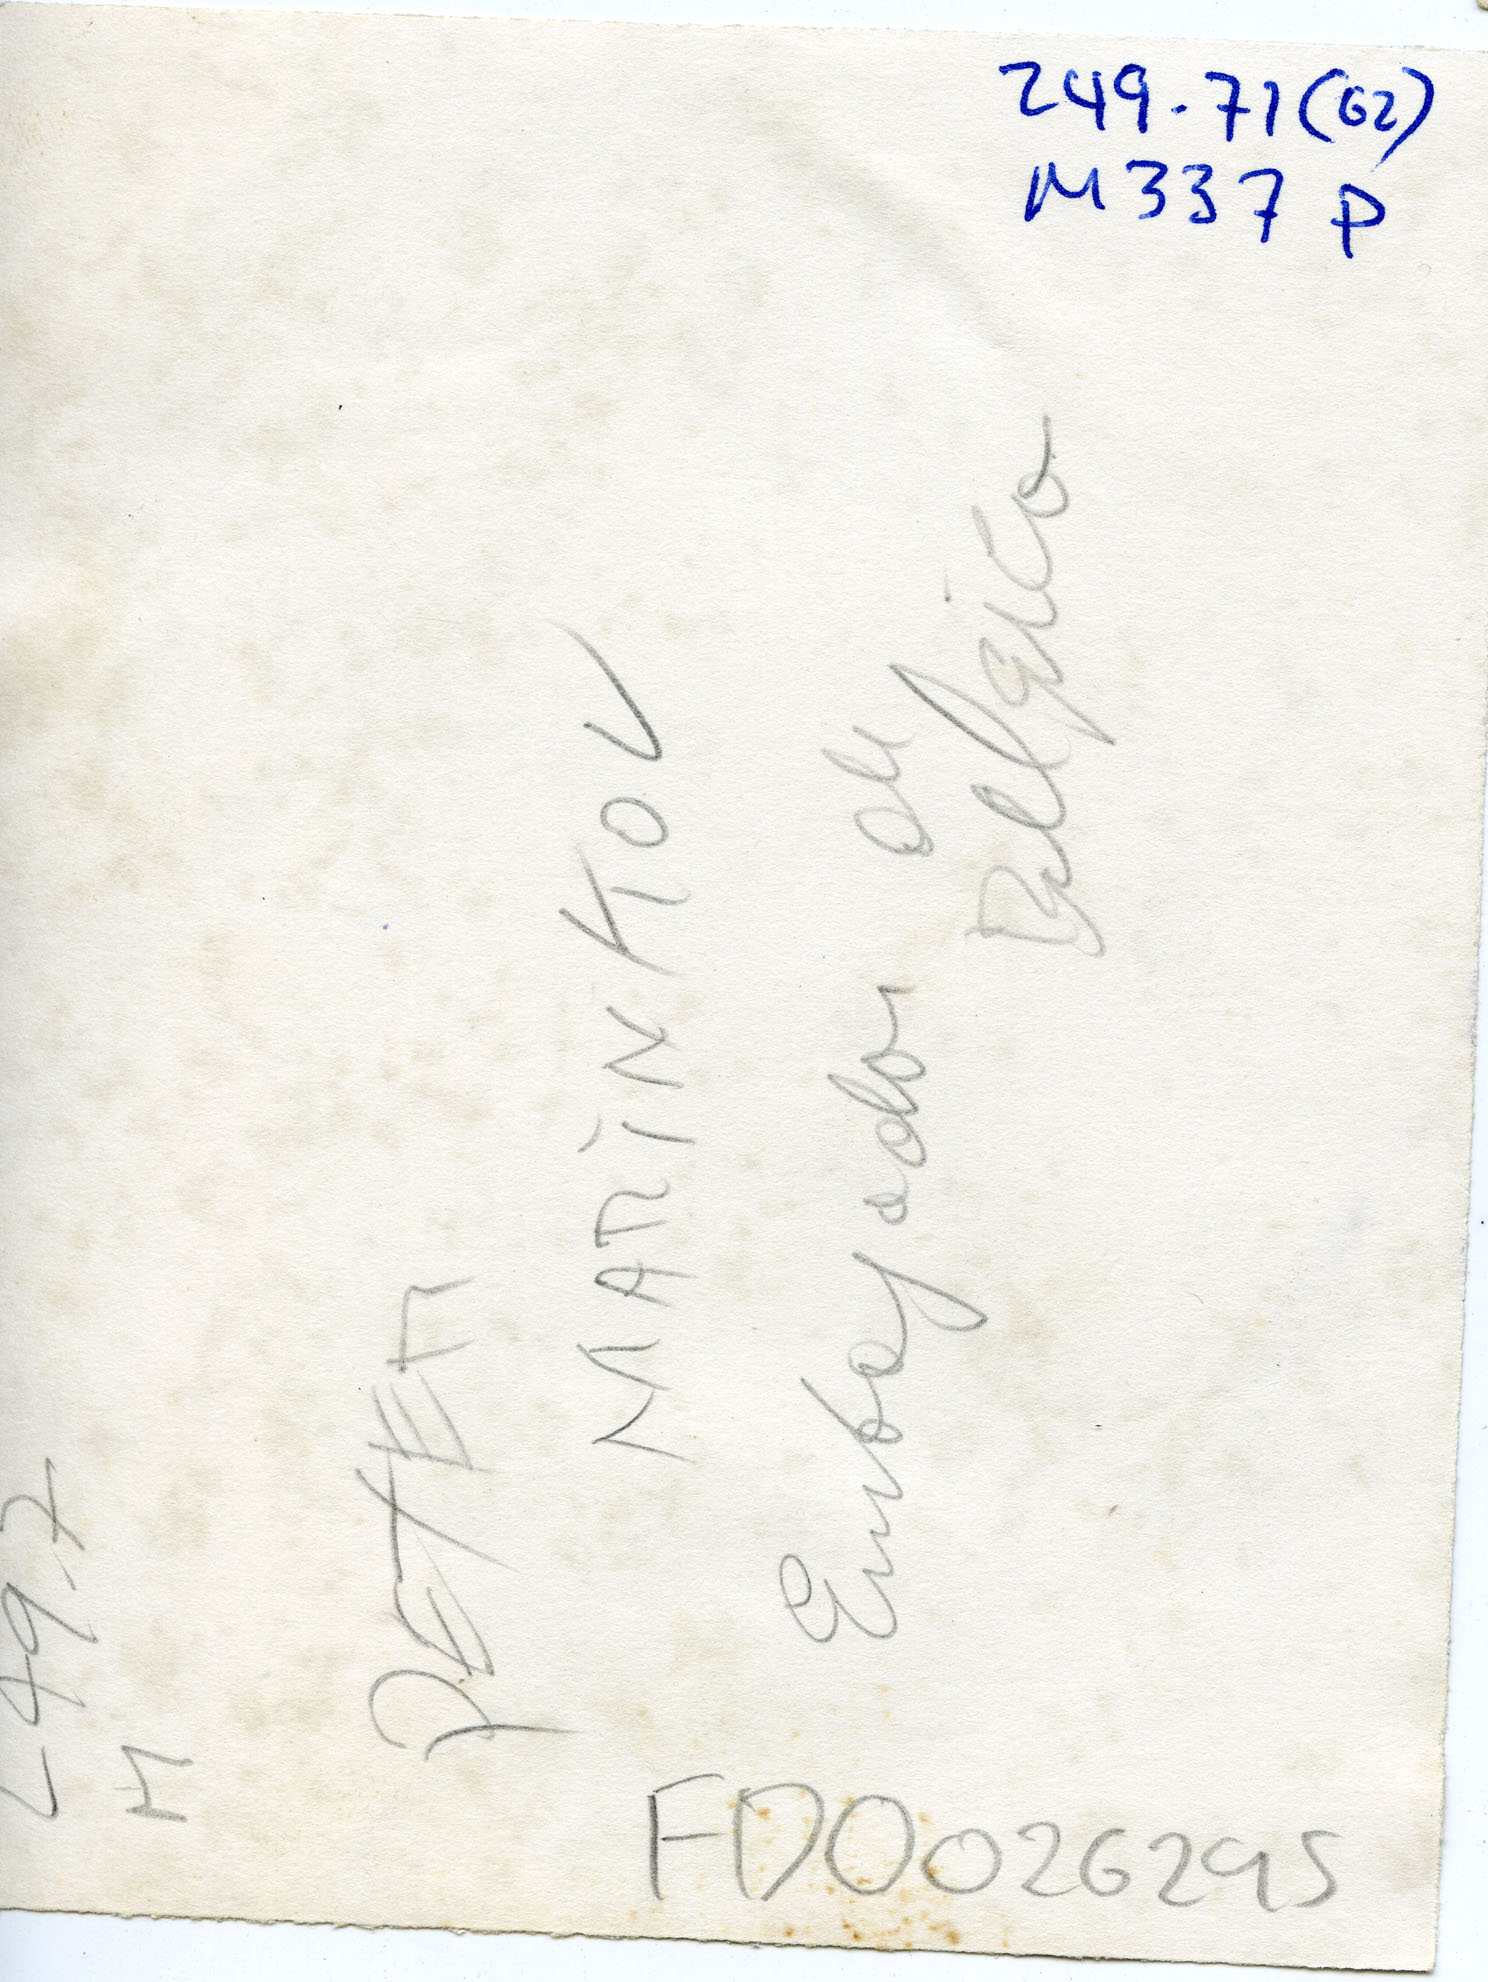 249.71(G2)
M337 P
PETER
MARINKOV
Embajador de
Belgica
249.7
M
FD0026295